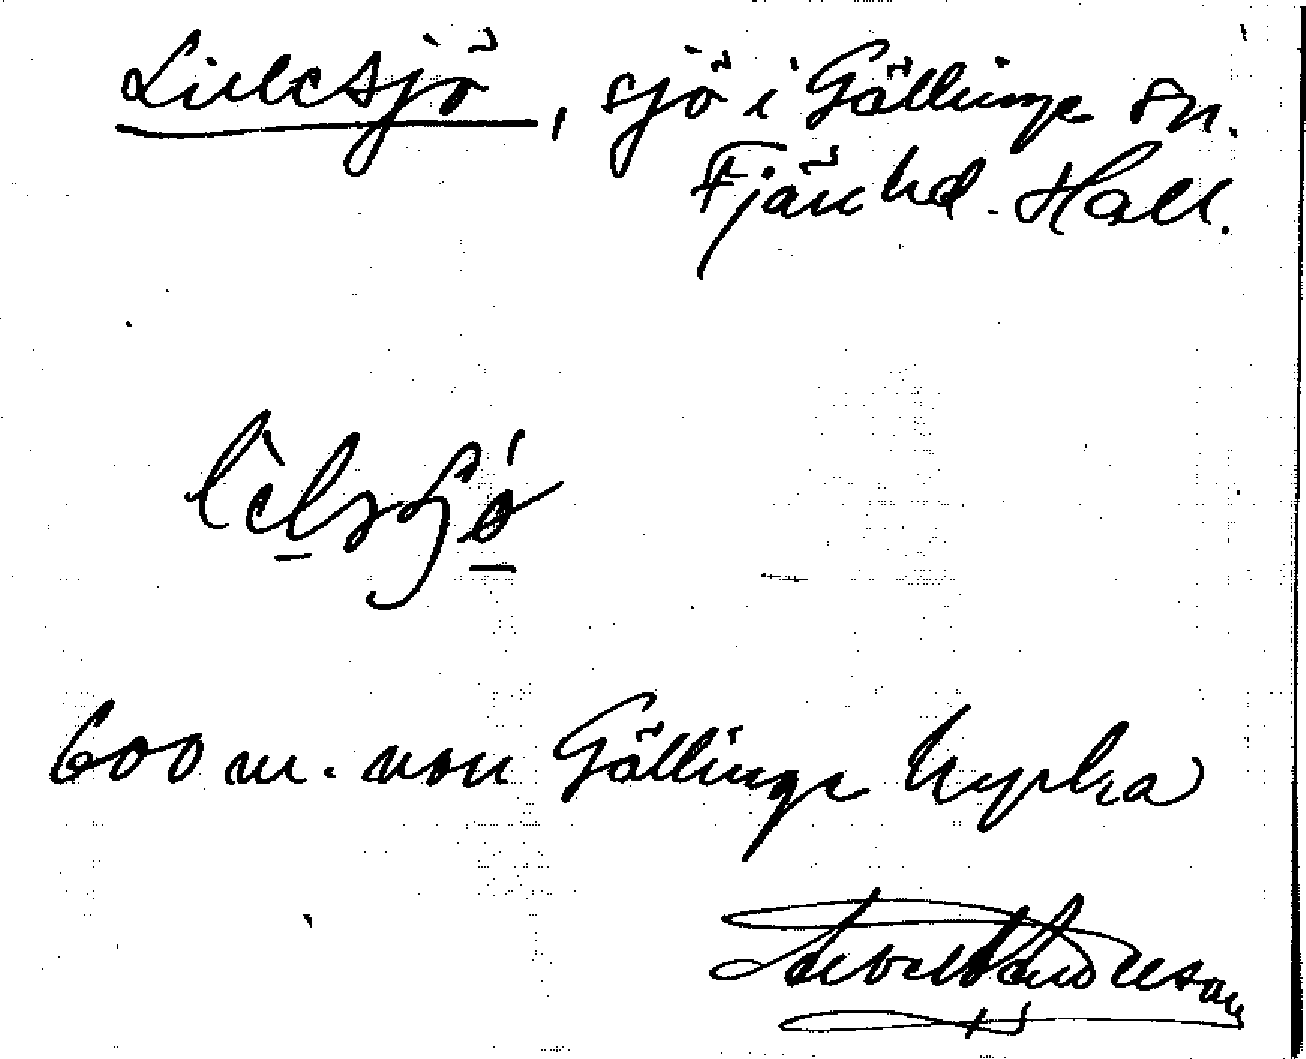 Lillesjö, sjö i Gällinge sn.
Fjäre hd. Hall.
lìlsjö́
600 m. nou Gällinge kyrka